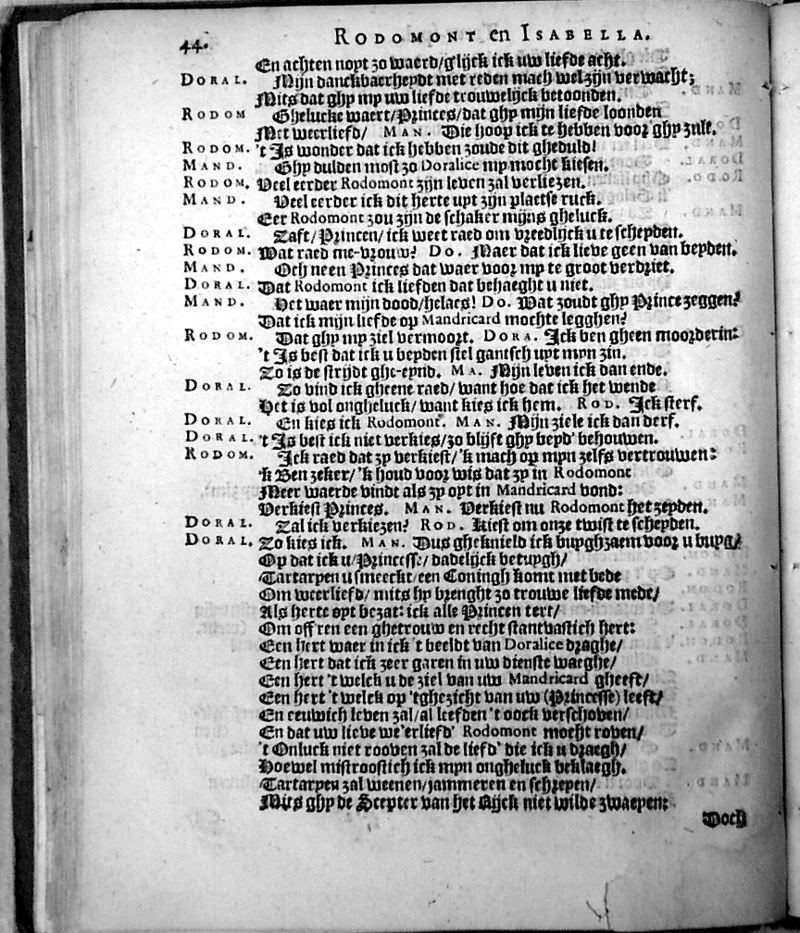 44. RODOMONT en ISABELLA.
En achten noyt zo waerd/ glijck ick uw liefde acht.
DORAL. Mijn danckbaerheydt met reden mach wel zijn verwacht;
Mits dat ghy my uw liefde trouwelijck betoonden.
RODOM Ghelucke waert/ Princes/ dat ghy mijn liefde loonden
Met weerliefd/ MAN. Die hoop ick te hebben voor ghy zult.
RODOM. 't Is wonder dat ick hebben zoude dit gheduld!
MAND. Ghy dulden most zo Doralice my mocht kiesen.
RODOM. Veel eerder Rodomont zijn leven zal verliezen.
MAND. Veel eerder ick dit herte uyt zijn plaetse ruck.
Eer Rodomont zou zijn de schaker mijns gheluck.
DORAL. Zaft/ Princen/ ick weet raed om vreedlijck u te scheyden.
RODOM. Wat raed me-vrouw? DO. Maer dat ick lieve geen van beyden.
MAND. Och neen Princes dat waer voor my te groot verdriet.
DORAL. Dat Rodomont ick liefden dat behaeght u niet.
MAND. Het waer mijn dood/ helaes! DO. Wat zoudt ghy Prince zeggen?
Dat ick mijn liefde op Mandricard mochte legghen?
RODOM. Dat ghy my ziel vermoort. DORA. Ick ben gheen moorderin:
't Is best dat ick u beyden stel gantsch uyt myn zin.
Zo is de strijdt ghe-eynd. MA. Mijn leven ick dan ende.
DORAL. Zo vind ick gheene raed/ want hoe dat ick het wende
Het is vol ongheluck/ want kies ick hem. ROD. Ick sterf.
DORAL. En kies ick Rodomont. MAN. Mijn ziele ick dan derf.
DORAL. 't Is best ick niet verkies/ zo blijft ghy beyd' behouwen.
RODOM. Ick raed dat zy verkiest/ 'k mach op myn zelfs vertrouwen:
'k Ben zeker/ 'k houd voor wis dat zy in Rodomont
Meer waerde vindt als zy oyt in Mandricard vond:
Verkiest Princes. MAN. Verkiest nu Rodomont het zeyden.
DORAL. Zal ick verkiezen? ROD. Kiest om onze twist te scheyden.
DORAL. Zo kies ick. MAN. Dus gheknield ick buyghzaem voor u buyg/
Op dat ick u/ Princesse/ dadelijck betuygh/
Tartaryen u smeeckt/ een Coningh komt met bede
Om weerliefd/ mits hy brenght zo trouwe liefde mede/
Als herte oyt bezat: ick alle Princen tert/
Om off'ren een ghetrouw en recht stantvastich hert:
Een hert waer in ick 't beeldt van Doralice draghe/
Een hert dat ick zeer garen in uw dienste waeghe/
Een hert 't welck u de ziel van uw Mandricard gheeft/
Een hert 't welck op 'tghezicht van uw (Princesse) leeft/
En eeuwich leven zal/ al leefden 't oock verschoven/
En dat uw lieve we'erliefd' Rodomont mocht roven/
't Onluck niet rooven zal de liefd' die ick u draegh/
Hoewel mistroostich ick myn ongheluck beklaegh.
Tartaryen zal weenen/ jammeren en schreyen/
Mits ghy de Scepter van het Rijck niet wilde zwaeyen:
Doch